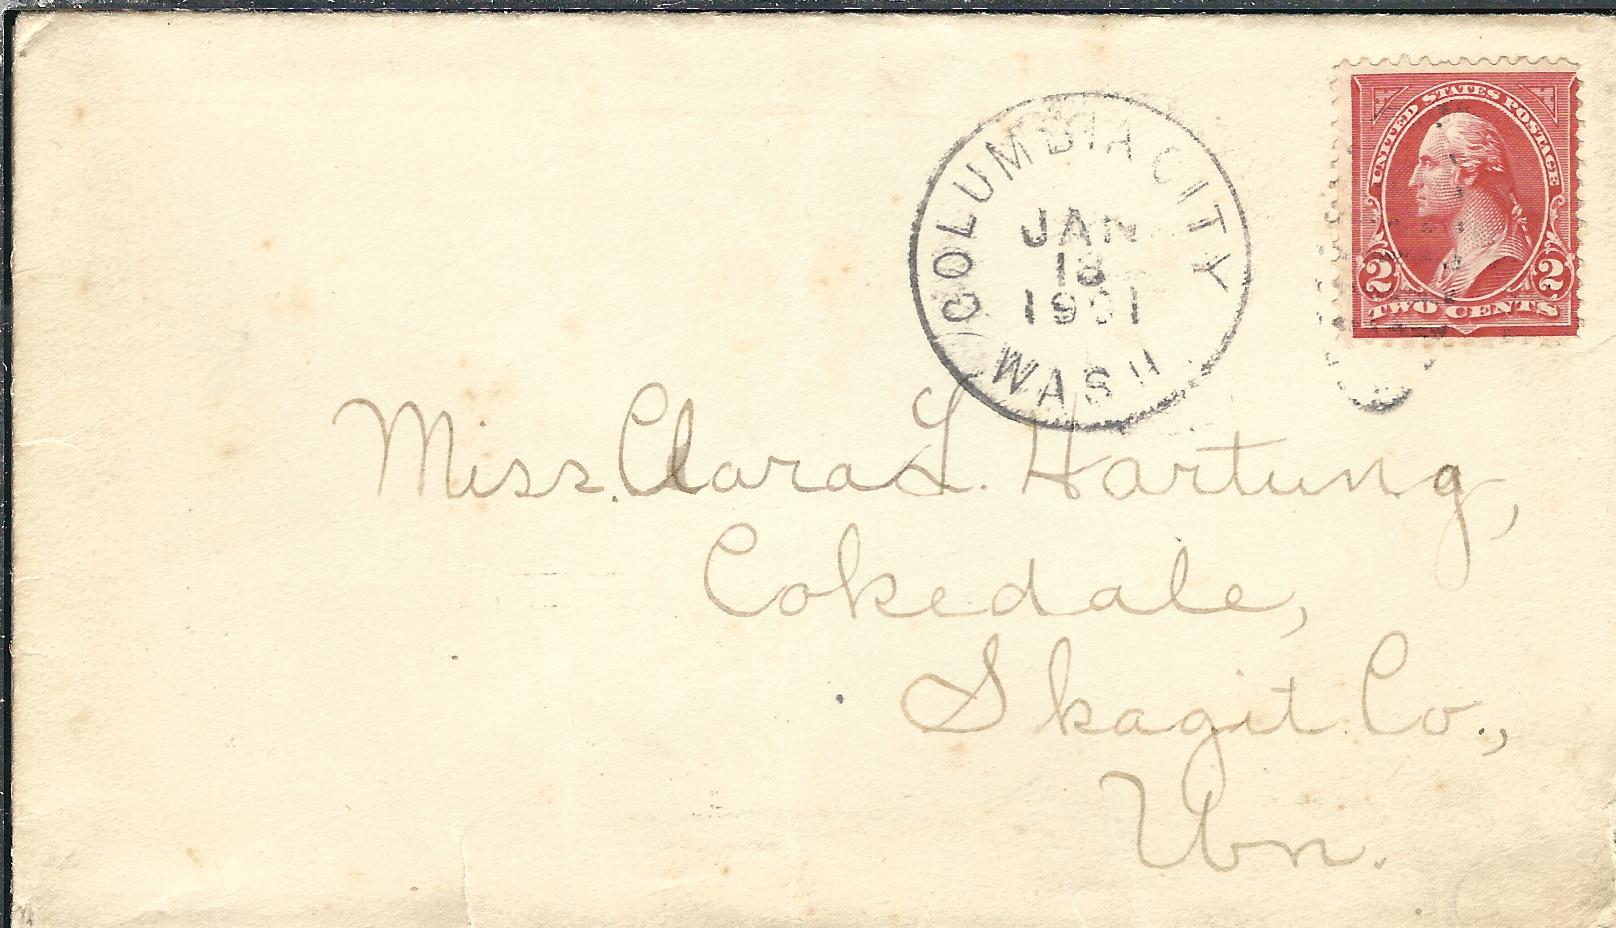 UNITED STATES POSTAGE
2 2
TWO CENTS
COLUMBIA CITY
JAN
18
1901
WASH
Miss. Clara L. Hartung,
Cokedale,
Skagit Co.,
Wn.